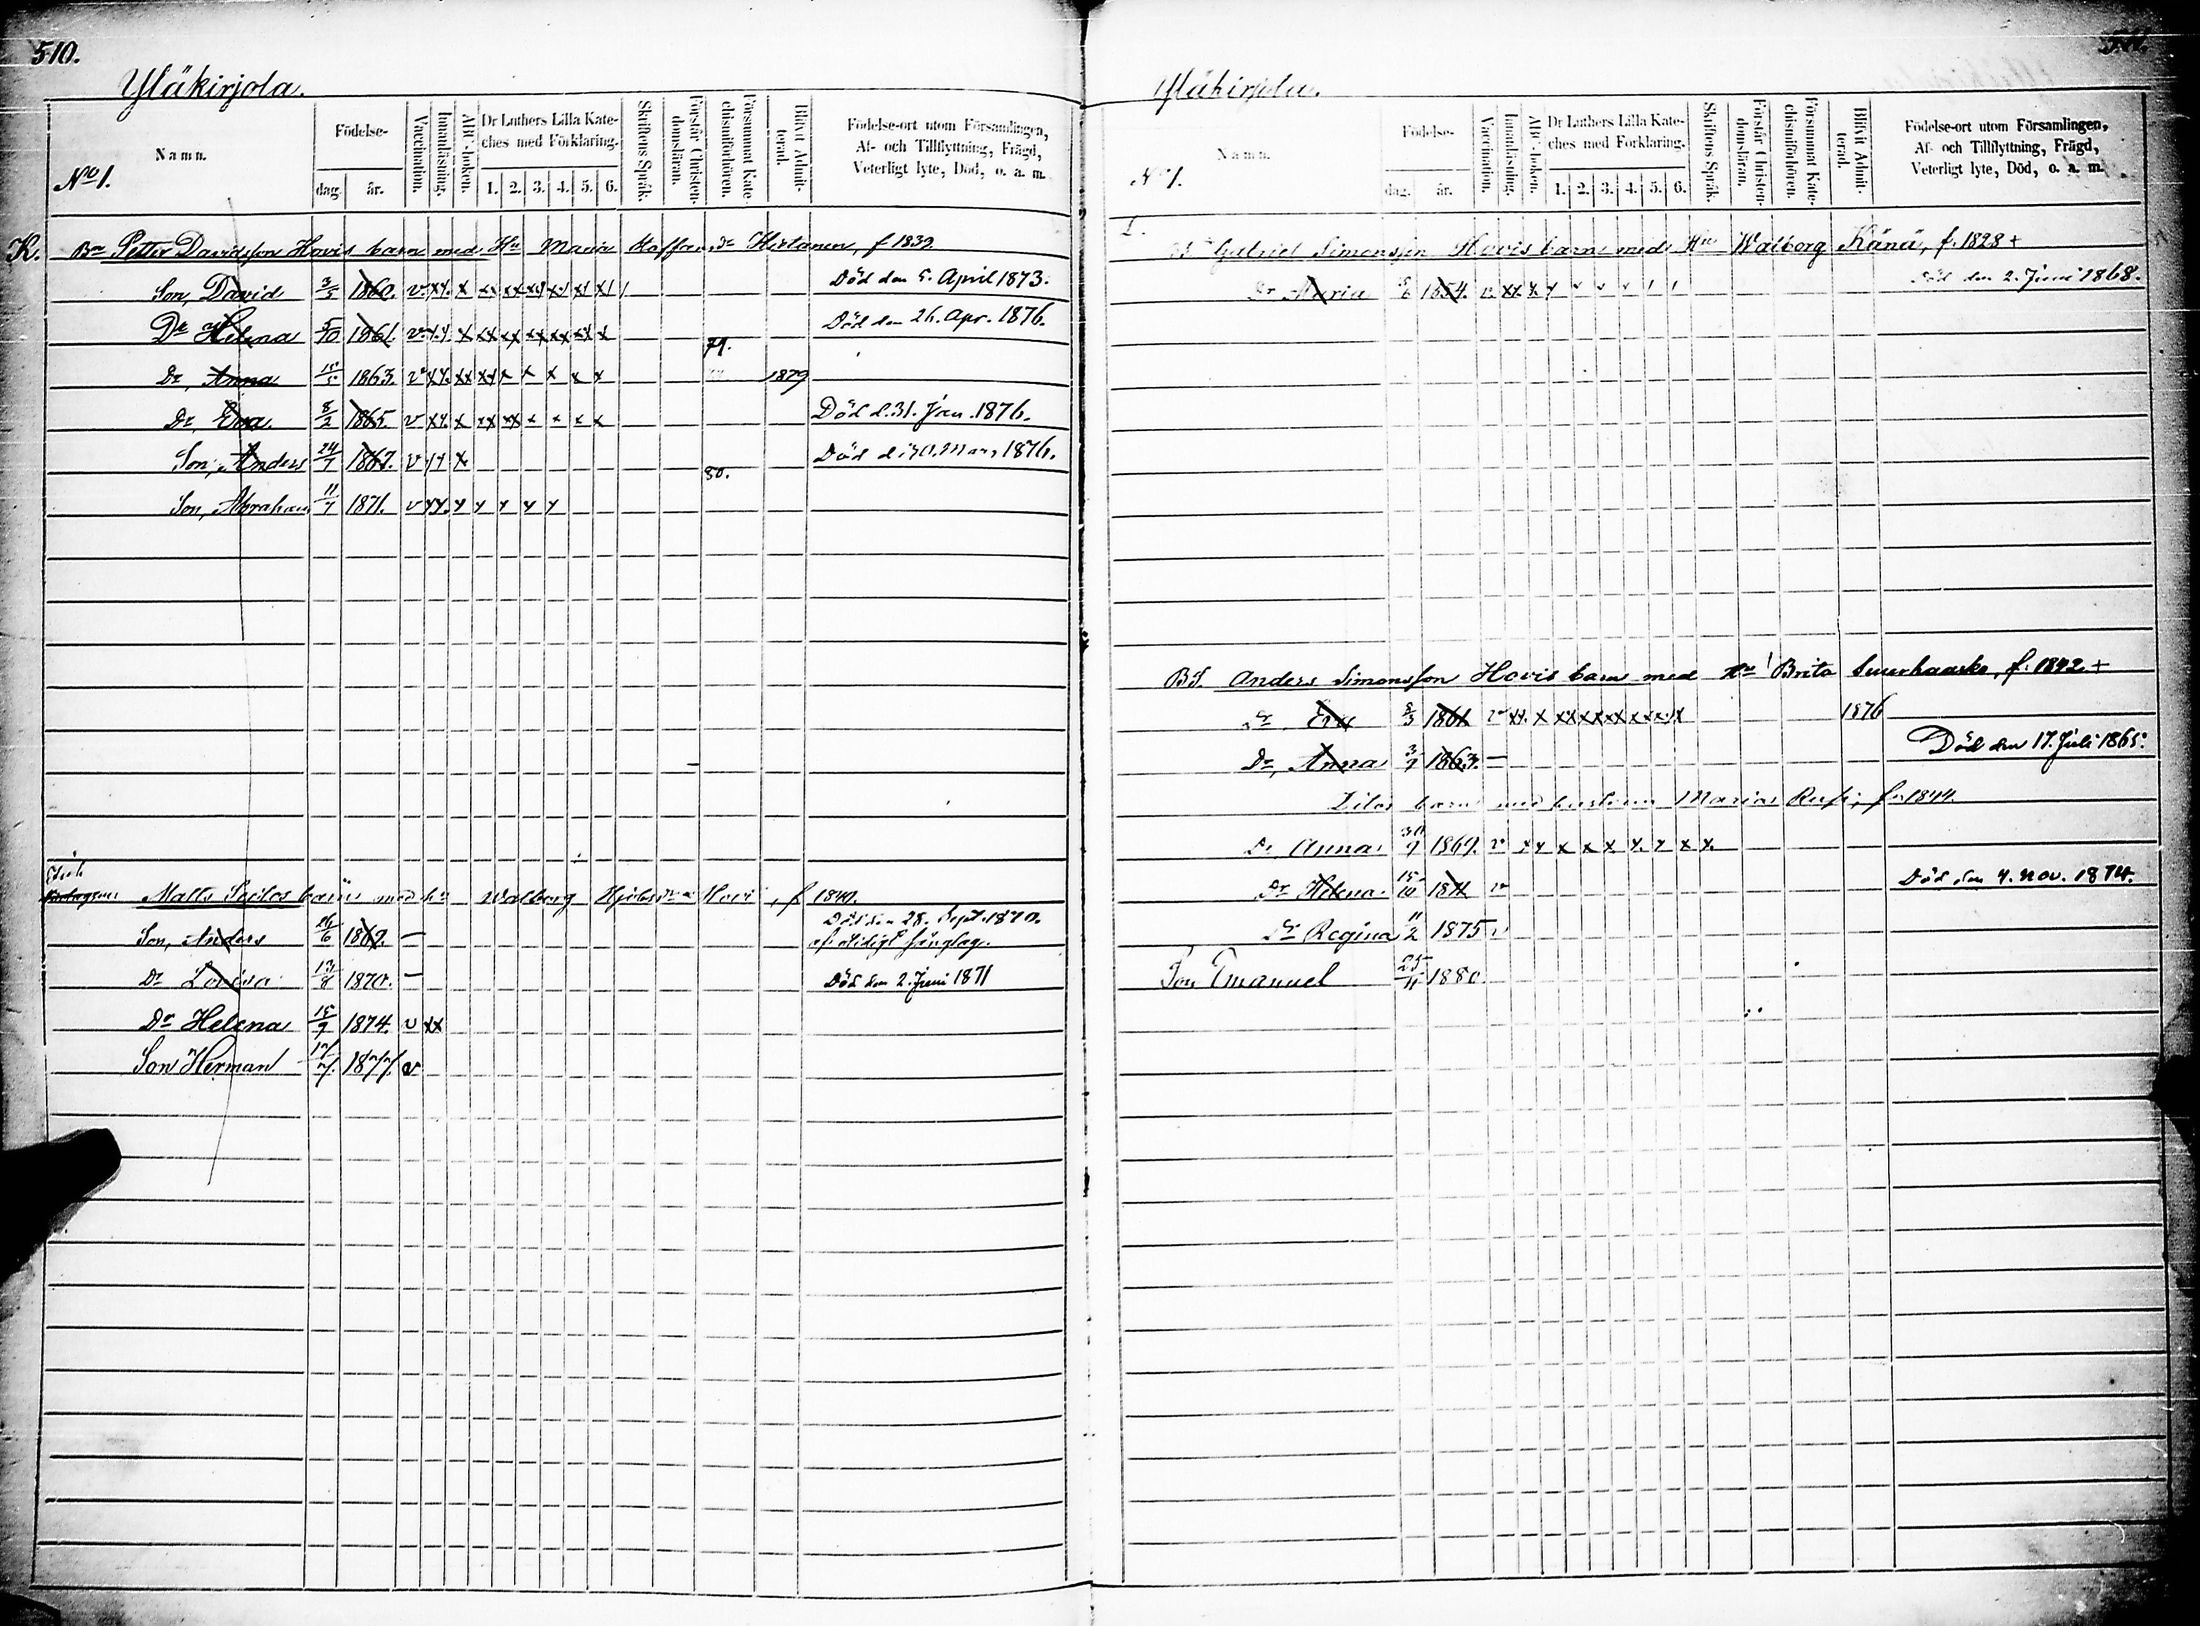 510.
Yläkirjola.
No 1.
Namn.
Födelse-
dag. år.
Vaccination.
Innanläsning.
ABC-boken.
Dr Luthers Lilla Kate-
ches med Förklaring.
1. 2. 3. 4. 5. 6.
Skriftens Språk.
Förstår Christen-
domsläran.
Försummat Kate-
chismiförhören.
Blifvit Admit-
terad.
Födelse-ort utom Församlingen,
Af- och Tillflyttning, Frägd,
Veterligt lyte, Död, o. a. m.
K. Bn Petter Davidsson Hovis barn med Hu Maria Hirtanen, f 1839
Son, David 3/5 1860. v. xx x xx xx xx xx xx x Död den 5. April 1873.
Dr Helena 5/10 1861. v. x x x xx xx xx xx xx x Död den 26. Apr. 1876.
79.
Dr, Anna 15/5 1863. v xx xx xx x x x x x 1879
Dr, Eva 8/2 1865. v xx x xx xx x x x x Död d. 31. Jan. 1876.
Son, Anders 24/7 1867. v x x Död d. 30. Mars 1876.
80.
Son, Abraham 11/7 1871. v xx x x x x x
Matts Seilos barn med hu Walborg Hovi, f 1840.
Son, Anders 26/6 1869. — Död den 28. Sept. 1870.
af slag.
Dr Lovisa 13/8 1870. — Död den 2. Juni 1871
Dr Helena 15/9 1874. v xx
Son Herman 17/7 1877. v
511.
Yläkirjola.
No 1.
Namn.
Födelse-
dag. år.
Vaccination.
Innanläsning.
ABC-boken.
Dr Luthers Lilla Kate-
ches med Förklaring.
1. 2. 3. 4. 5. 6.
Skriftens Språk.
Förstår Christen-
domsläran.
Försummat Kate-
chismiförhören.
Blifvit Admit-
terad.
Födelse-ort utom Församlingen,
Af- och Tillflyttning, Frägd,
Veterligt lyte, Död, o. a. m.
Gabriel Simonsson Hovis barn med Hu Walborg Känä, f. 1828 +
Dr Maria 1854. v. xx x x Död den 2. Juni 1868.
Anders Simonsson Hovis barn med Hu Brita Suurhaasko, f. 1842 +
Dr Eva 8/3 1861 v xx x xx xx xx x xx x 1876
Dr, Anna 3/9 1863. — Död den 17. Juli 1865.
Ditos barn med hustrun Maria Rusi, f. 1844.
Dr, Anna 30/9 1869. v x x x x x x x x x
Dr Helena 15/10 1871 v Död den 4. Nov. 1874.
Dr Regina 11/2 1875 v
Son Emanuel 25/11 1880.